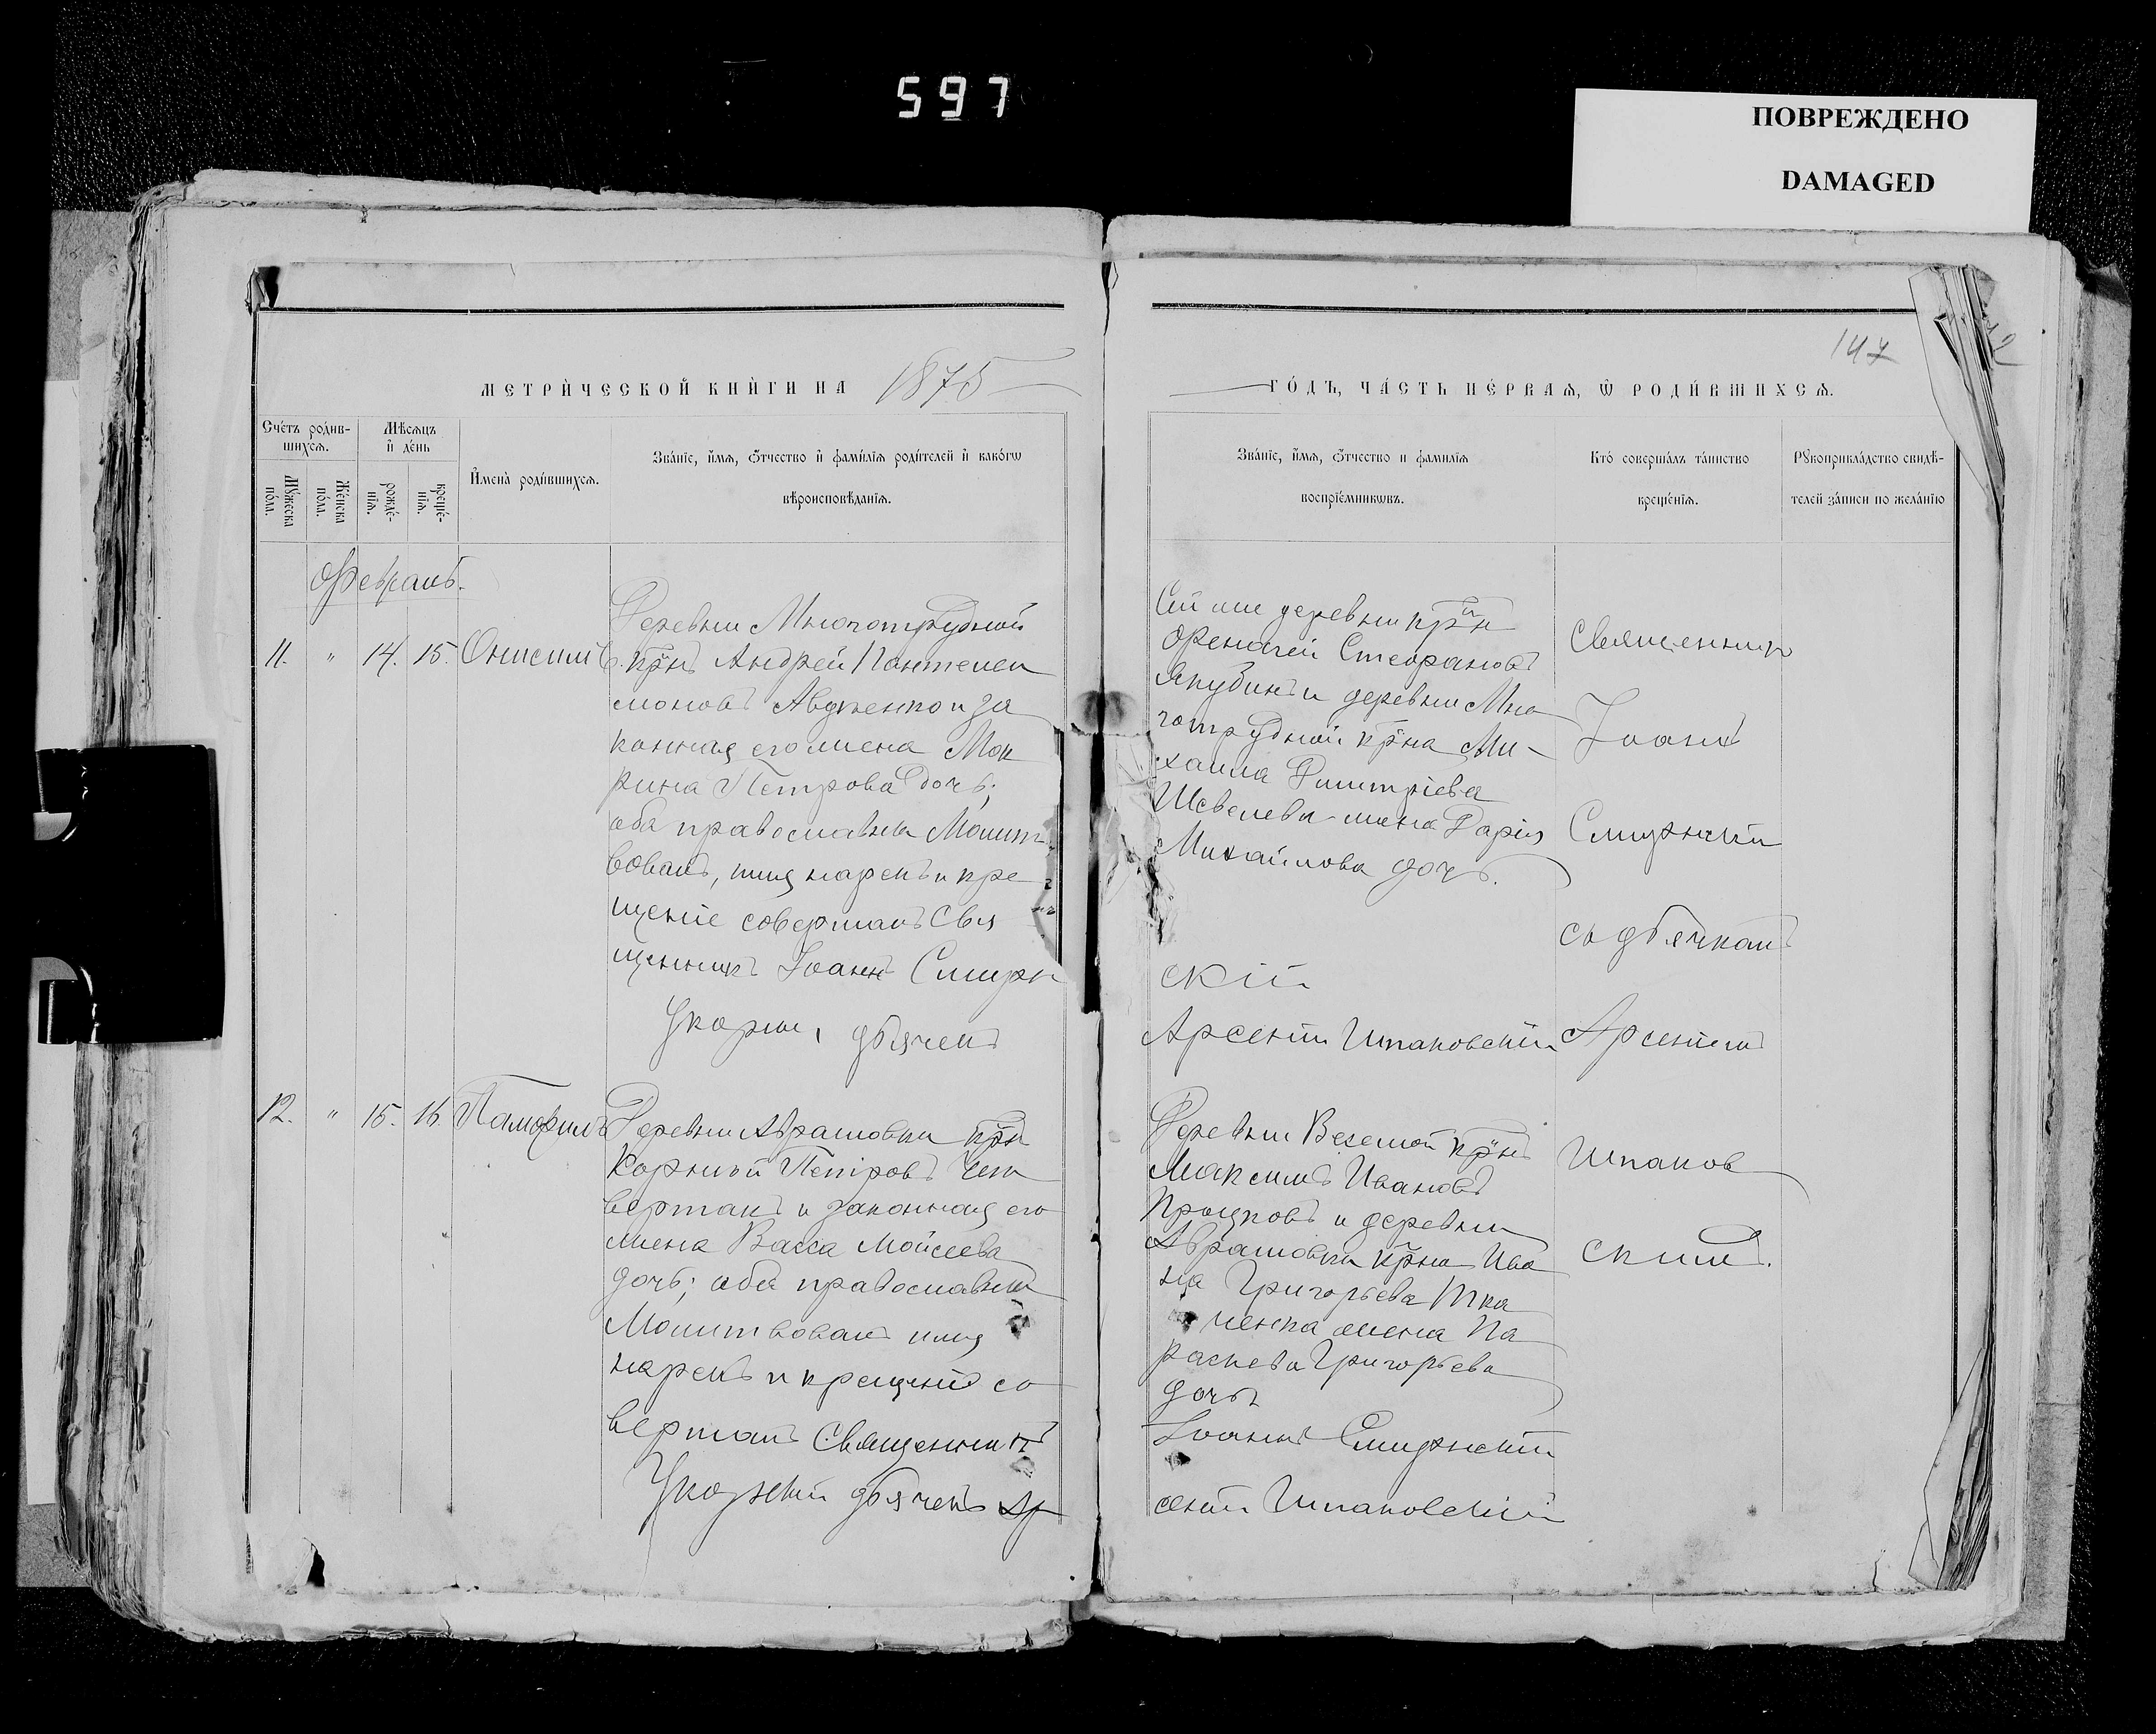 597
ПОВРЕЖДЕНО
DAMAGED
147
МЕТРИ́ЧЕСКОЙ КНИ́ГИ НА 1875
ГО́ДЪ, ЧА́СТЬ ПЕ́РВАѦ, Ѿ РОДИ́ВШИХСѦ.
Сче́тъ роди́в-
шихсѧ.
Мѣ́сѧцъ
и҆ де́нь
Му́жеска
по́ла.
Же́нска
по́ла.
рожде́-
нїѧ.
креще́-
нїѧ.
И҆мена̀ роди́вшихсѧ.
Зва́нїе, и҆́мѧ, ѻ҆́тчество и҆ фами́лїѧ роди́телей и҆ како́гѡ
вѣроисповѣ́данїѧ.
Зва́нїе, и҆́мѧ, ѻ҆́тчество и фамилїѧ
воспрїе́мникѡвъ.
Кто̀ соверша́лъ та́инство
креще́нїѧ.
Рꙋкоприкла́дство свидѣ́-
телей за́писи по жела́нїю
Февраль.
11. " 14. 15. Онисимъ.
Деревни Многотрудной
крнъ Андрей Пантелеи
моновъ Авдіенко и за
конная его жена Мок
рина Петрова дочь;
оба православны Молит
вовалъ, имя нарекъ и кре
щеніе совершалъ Свя
щенникъ Іоаннъ Смирн
дьячекъ
Сей же деревни крнъ
Стефановъ
Якубинъ и деревни Мно
готрудной крна Ми-
хаила Димитріева
Шевелева жена Дарія
Михайлова дочь.
скій
Арсеній Шпаковскій
Священникъ
Іоаннъ
съ дьячкомъ
Арсеніемъ
Шпаков
скимъ.
12. " 15. 16. Памфилъ
Деревни Аврамовки крнъ
Корнилій Петровъ Чет
вертакъ и законная его
жена Васса Мойсеева
дочь; оба православны
Молитвовалъ имя
нарекъ и крещеніе со
вершалъ Священникъ
дьячекъ Ар
Деревни Веселой крнъ
Максимъ Ивановъ
и деревни
Аврамовки крна Ива
на Григорьева Тка
ченка жена Па
раскева Григорьева
дочь
Іоаннъ Смирнскій
сеній Шпаковскій